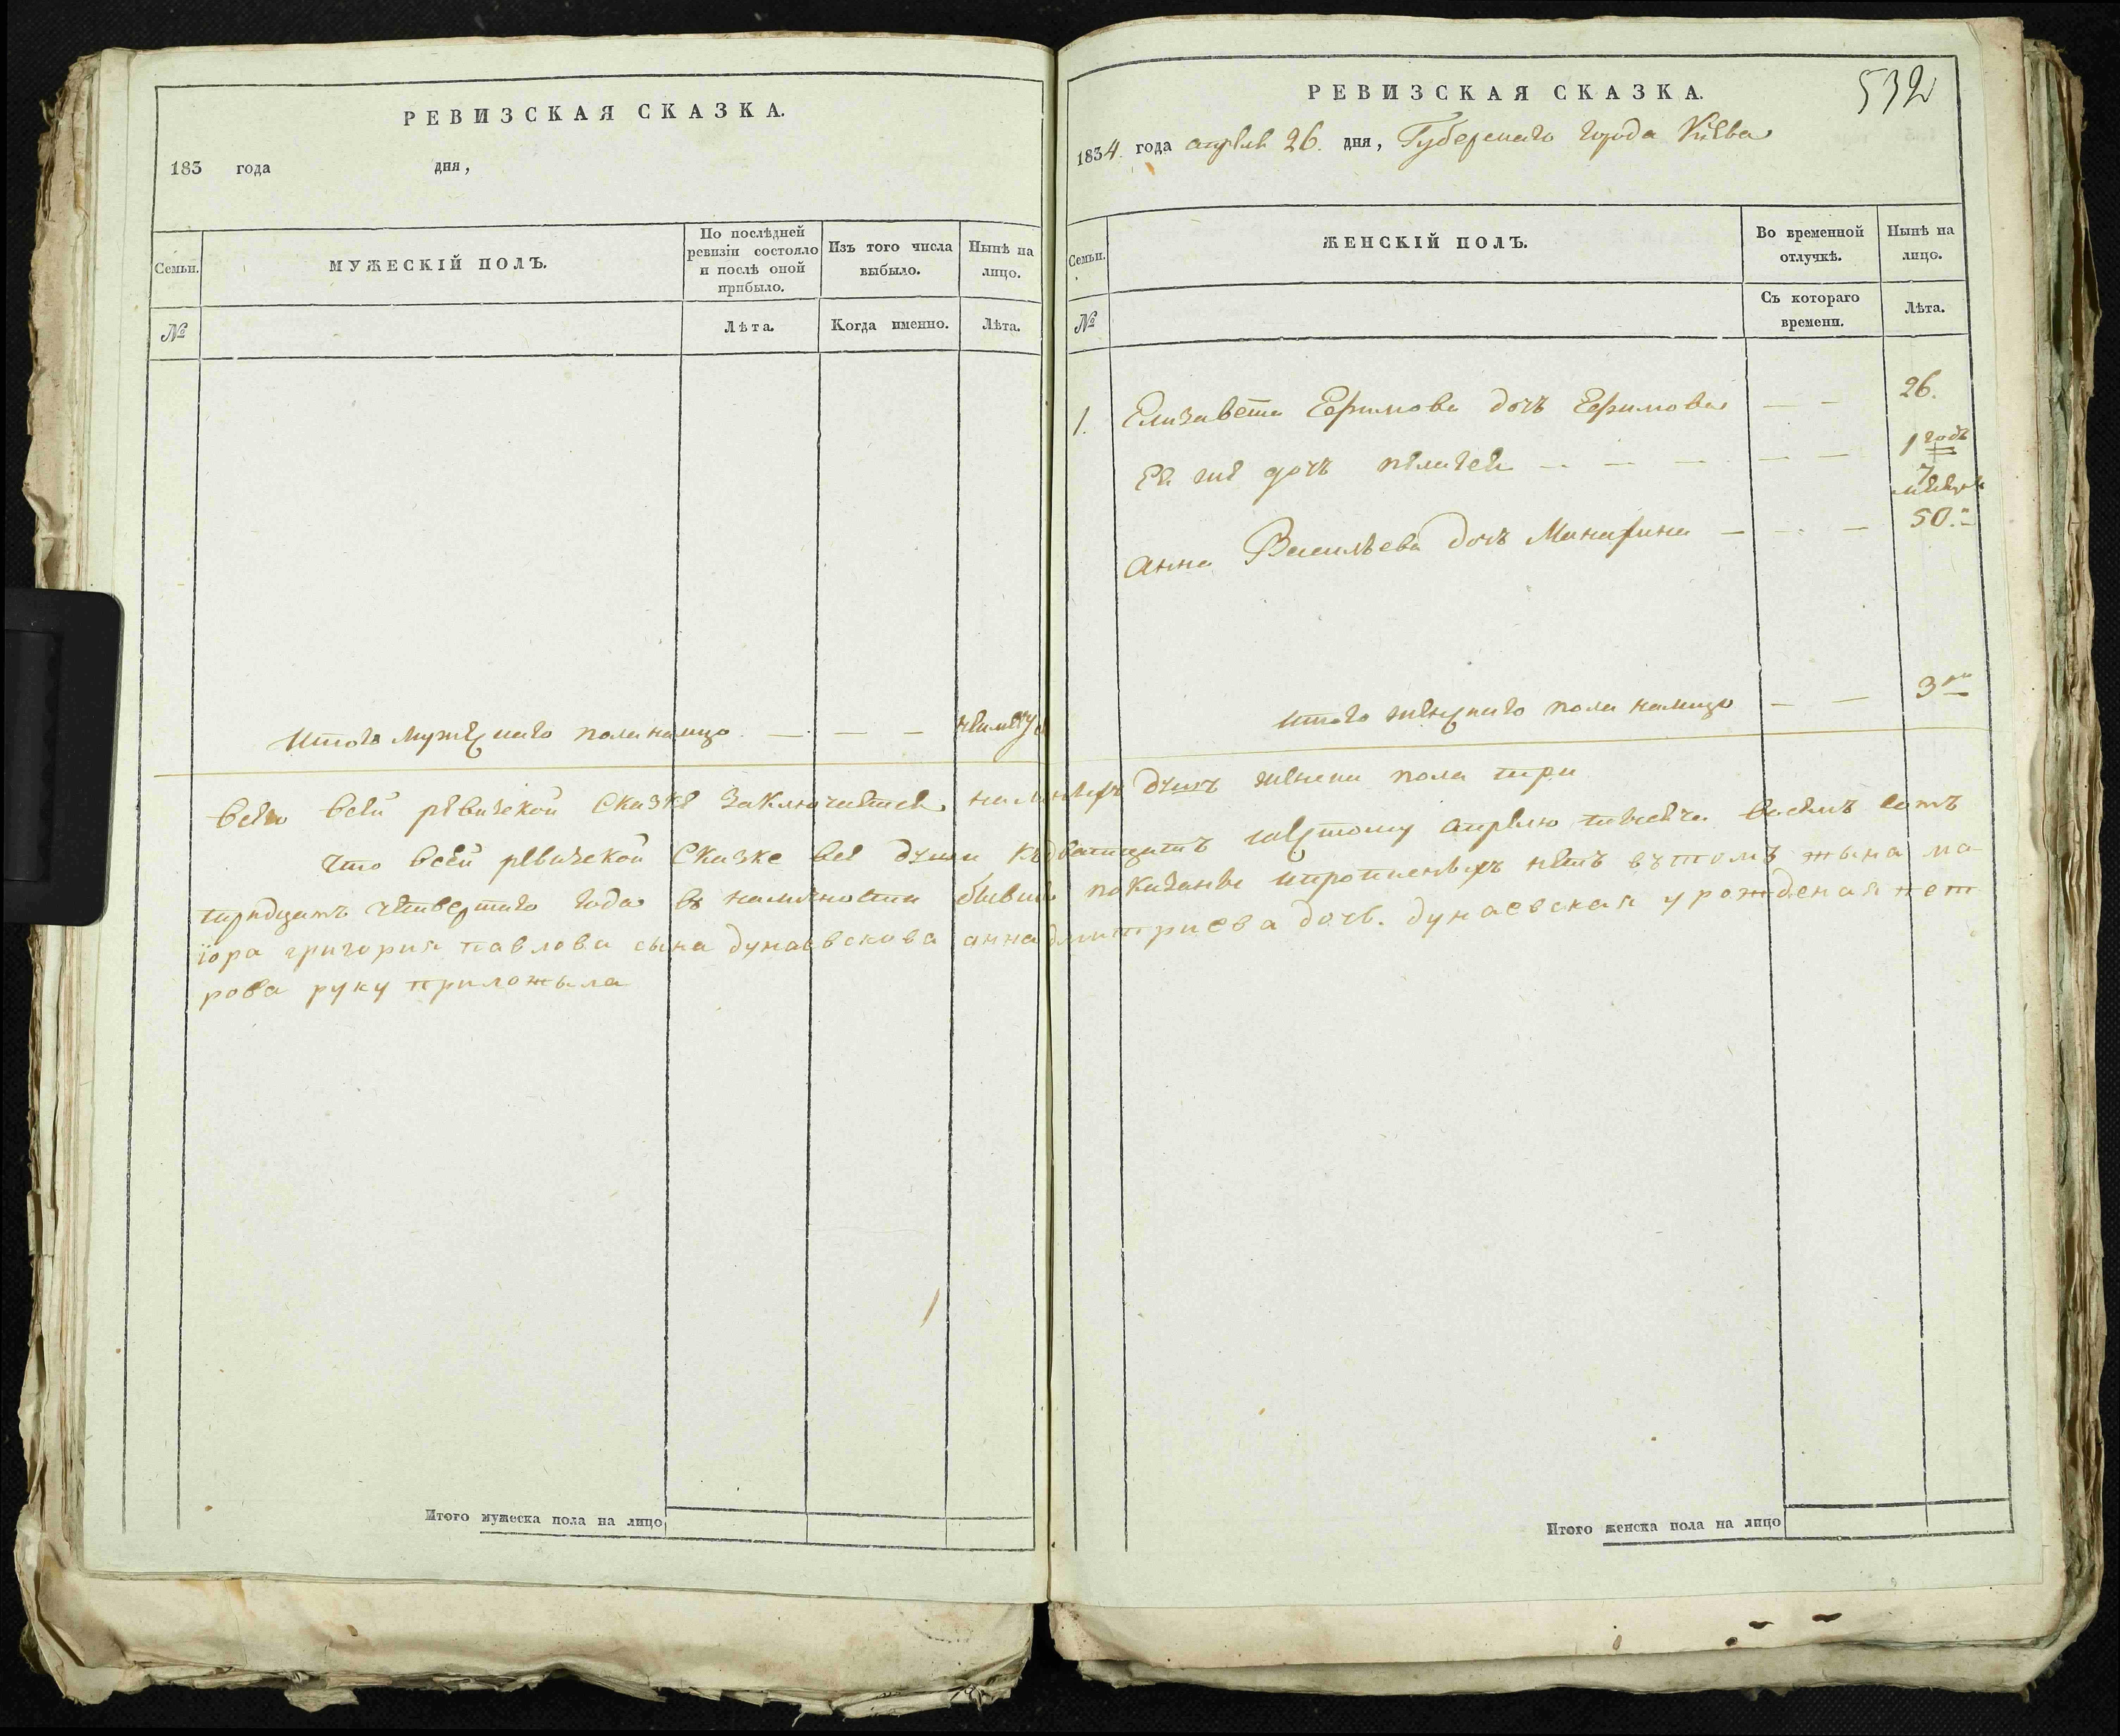 РЕВИЗСКАЯ СКАЗКА.
183 года дня,
Семьи.
МУЖЕСКІЙ ПОЛЪ.
По послѣдней
ревизіи состояло
и послѣ оной
прибыло.
Изъ того числа
выбыло.
Нынѣ на
лицо.
№
Лѣта.
Когда именно.
Лѣта.
Итого мужескаго пола налицо — — —
РЕВИЗСКАЯ СКАЗКА.
532
1834. года апрѣля 26. дня, Губернскаго города Кіева
Семьи.
ЖЕНСКІЙ ПОЛЪ.
Во временной
отлучкѣ.
Нынѣ на
лицо.
№
Съ котораго
времени.
Лѣта.
1. Елизавета Ефимова дочь Ефимова — — 26.
Ея же дочь — — — — — 1 годъ
7
50.
Анна Васильева дочь — — —
Итого женскаго пола налицо — — 3
всего всей ревизской сказкѣ заключается наличныхъ душъ женска пола три
Что всей ревизской сказке все души къ дватцать шестому апрелю тысеча восемъ сотъ
тридцать четвертаго года въ наличности бывшие показаны и прописныхъ нѣтъ вътомъ жына ма
іора григория павлова сына дунаевскова анна дмитриева дочь. дунаевская урожденая пет
рова руку приложыла
Итого мужеска пола на лицо
Итого женска пола на лицо